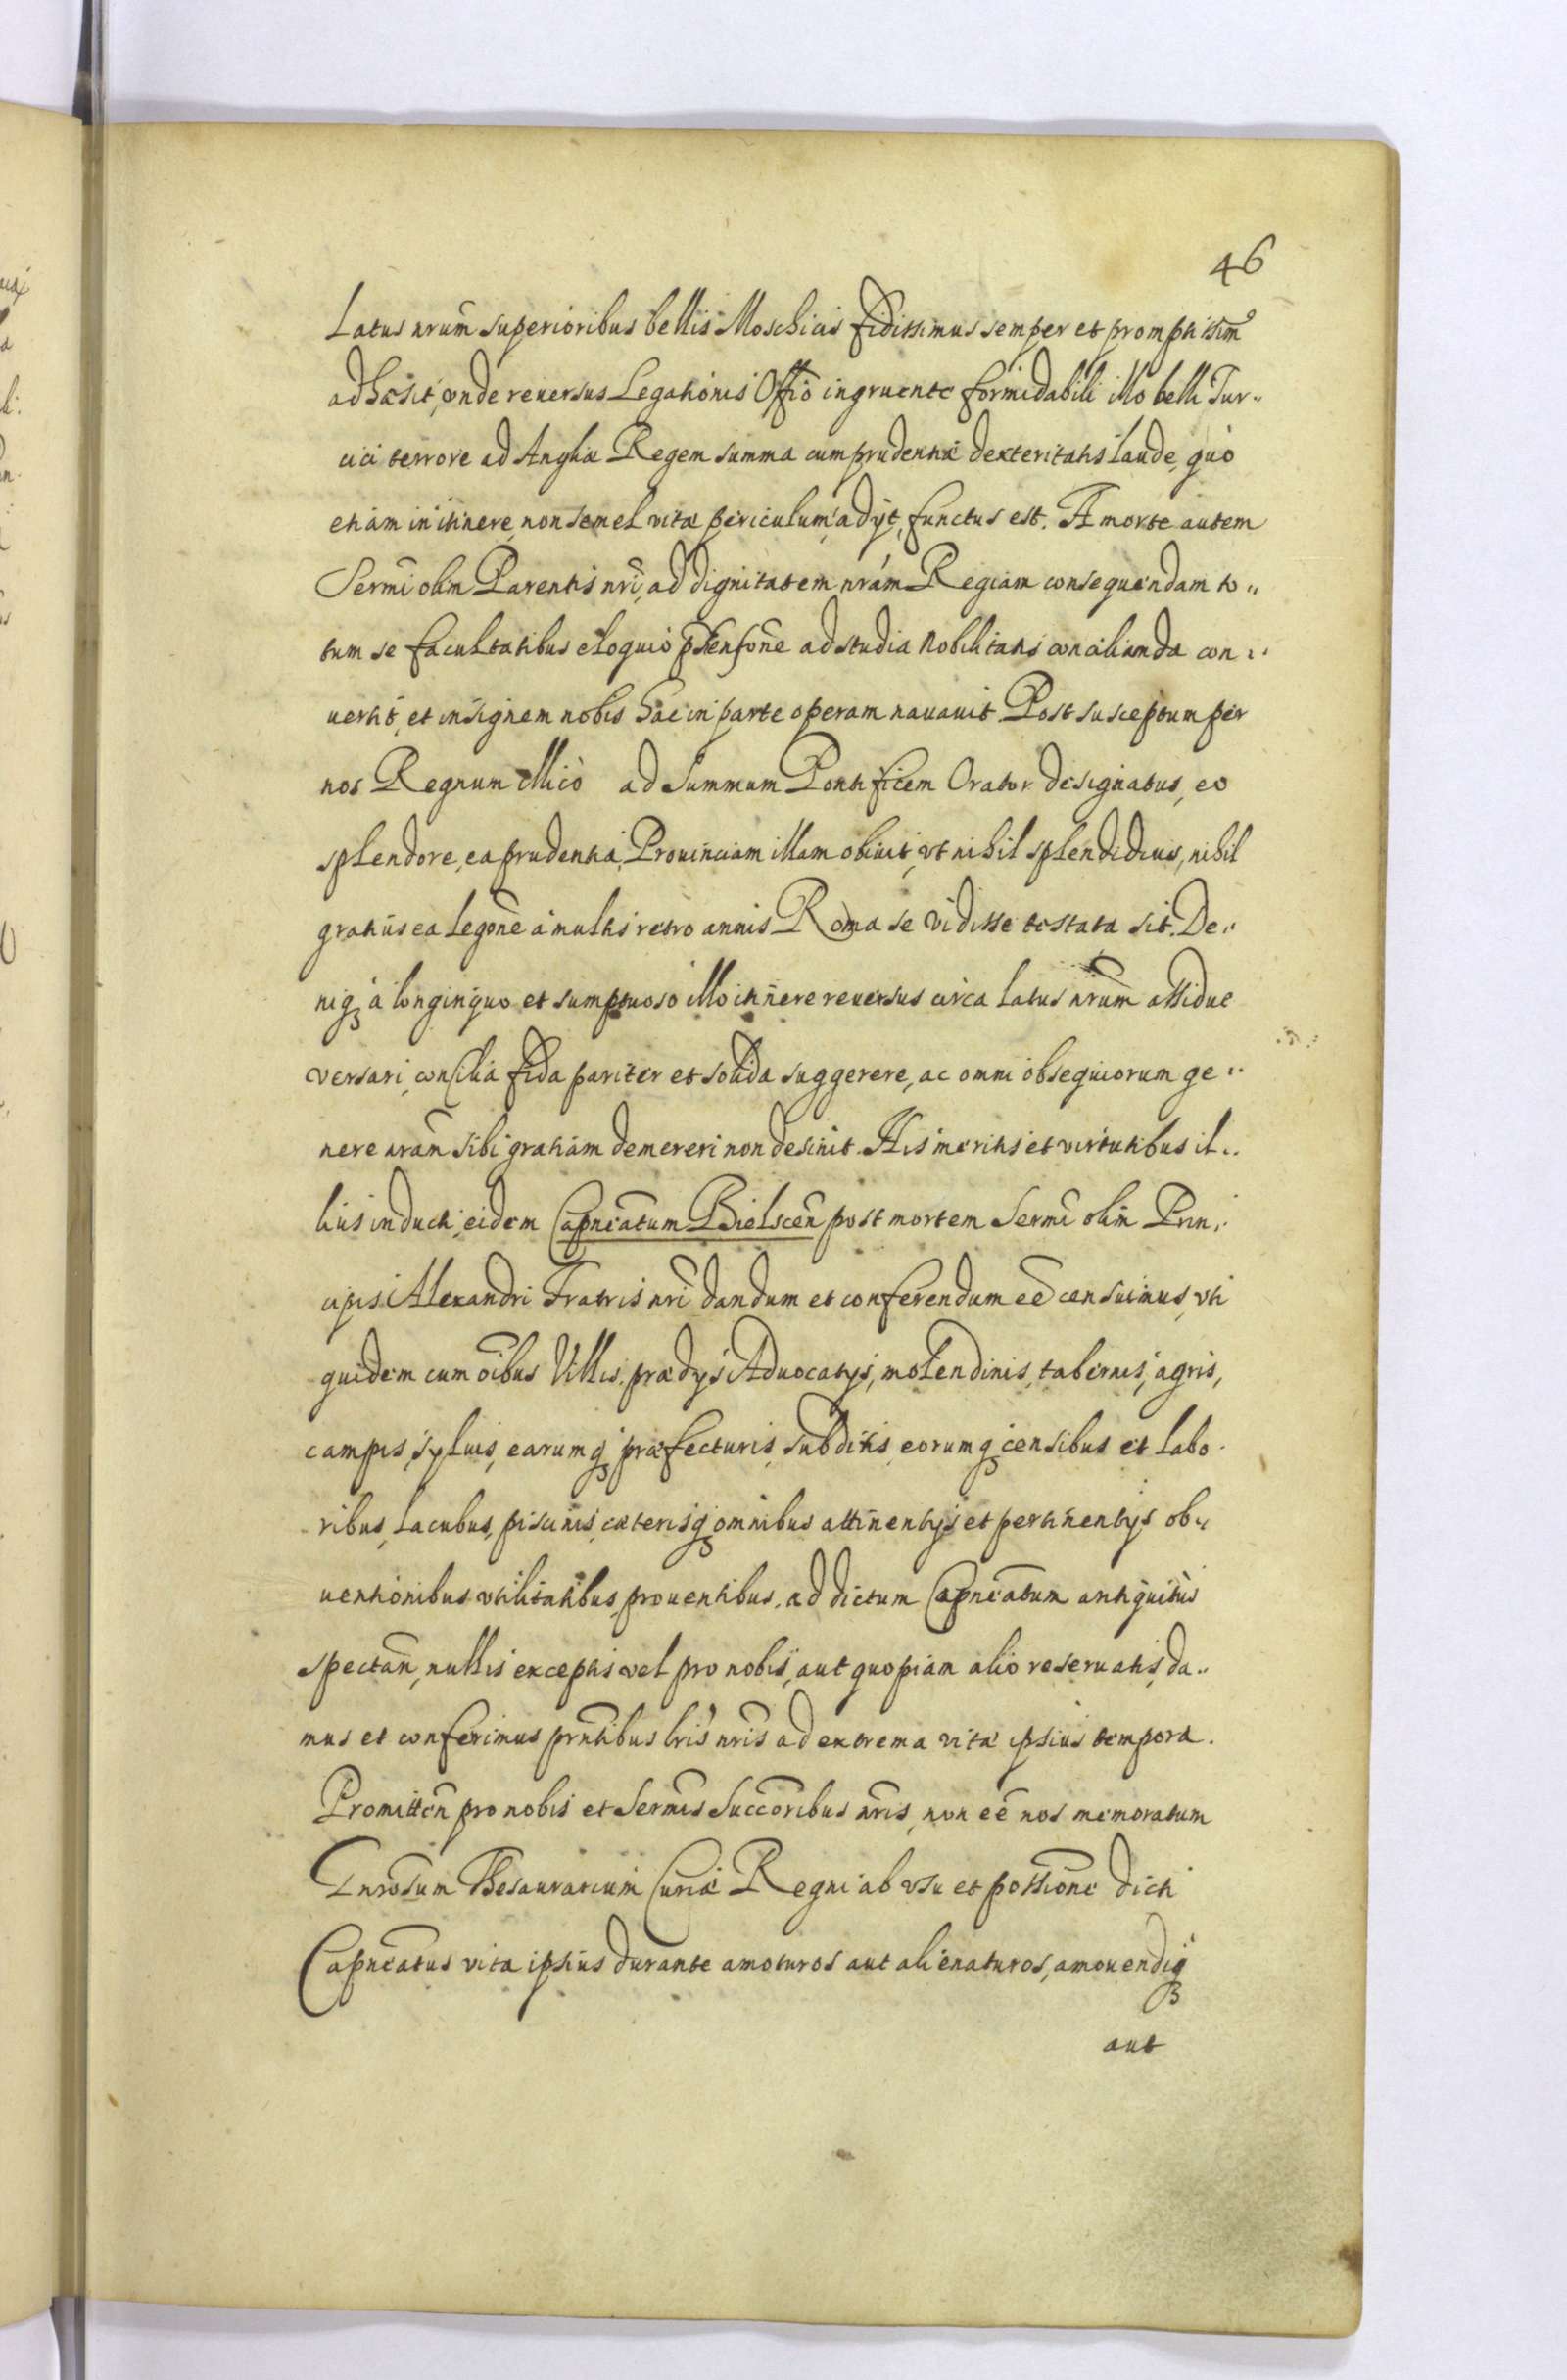 46
Latus nrum̄ superioribus bellis Moschicis fidissimus semper et promptissim9
adhæsit, vnde reuersus Legationis Offō ingruente formidabili illo belli Tur„
cici terrore ad Angliæ Regem summa cum prudentiæ dexteritatis laude, quo
etiam in itinere, non semel vitæ periculum adijt, functus est. A morte autem
Sermī olim Parentis nrī, ad dignitatem nrām Regiam consequendam to„
tum se facultatibus eloquio ad studia Nobilitatis concilianda con„
uertit, et insignem nobis hac in parte operam nauauit. Post susceptum per
nos Regnum illico ad Summum Pontificem Orator designatus, eo
splendore, ea prudentia, Prouinciam illam obiuit, vt nihil splendidius, nihil
gratius ea Legōne a multis retro annis Roma se vidisse testata sit. De„
niqȝ a longinquo et sumptuoso illo itinere reuersus circa latus nrūm assidue
versari, consilia fida pariter et solida suggerere, ac omni obsequiorum ge„
nere nrām sibi gratiam demereri non desinit. His meritis et virtutibus il„
lius inducti, eidem Capnēatum Bielscēn post mortem Sermī olim Prin„
cipis Alexandri Fratris nrī dandum et conferendum eē censuimus, vti
quidem cum oībus Villis, prædijs Aduocatijs, molendinis, tabernis, agris,
campis, syluis, earumqȝ præfecturis, subditis, eorumqȝ censibus et labo„
ribus, Lacubus, piscinis, cæterisqȝ omnibus attinentijs et pertinentijs ob„
uentionibus vtilitatibus, prouentibus, ad dictum Capnēatum antiquitus
spectān, nullis exceptis vel pro nobis, aut quopiam alio reseruatis, da„
mus et conferimus prn̄tibus lrīs nrīs ad extrema vitæ ipsius tempora.
Promittēn pro nobis et Sermīs Succōribus nrīs, non eē nos memoratum
Gnrosum Thesaurarium Curiæ Regni ab vsu et possiōne dicti
Capnēatus vita ipsius durante amoturos aut alienaturos, amouendiqȝ
aut